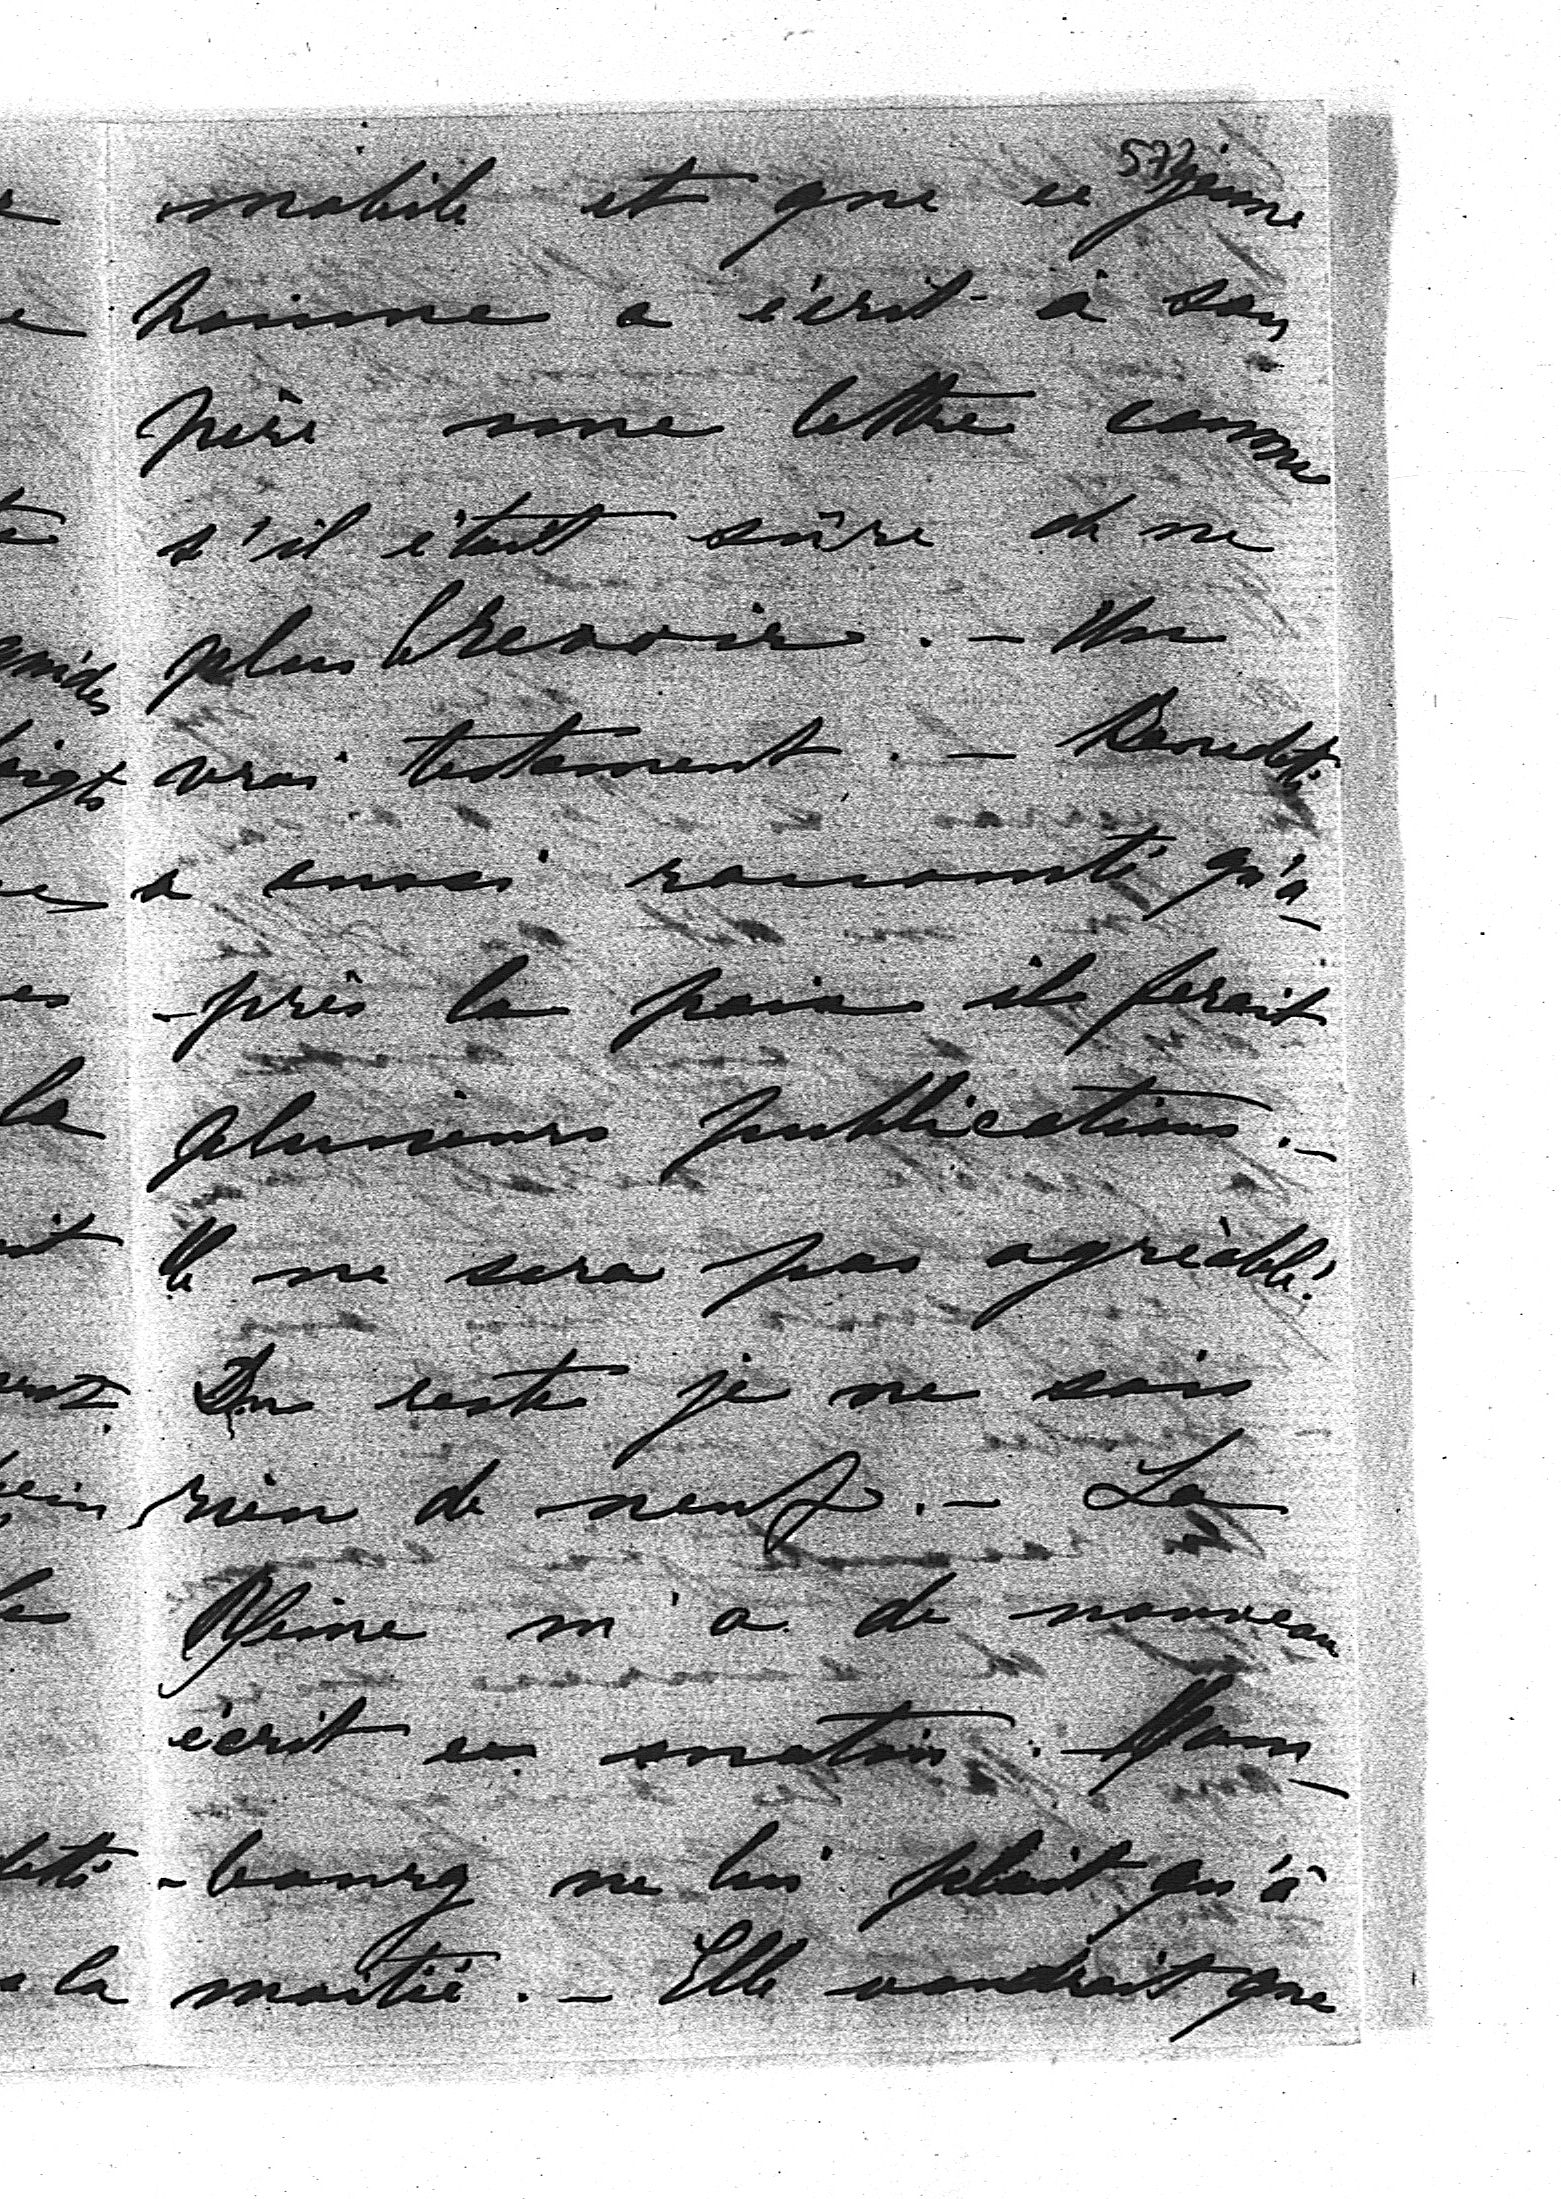 572
mobile et que ce jeune
homme a écrit à son
père une lettre comme
s'il était sûre de ne
plus le revoir. – Un
vrai testament. – Benedeti
a aussi raconté qu'a-
-près la paix il ferait
plusieurs publications. –
Il ne sera pas agréable.
Du reste je ne sais
rien de neuf. – La
Reine m'a de nouveau
écrit ce matin. Ham-
-bourg ne lui plait qu'à
moitié. – Elle voudrait que